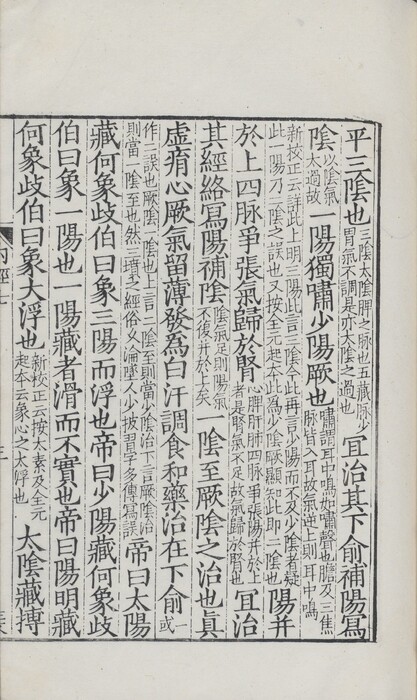 平三陰也三陰太陰脾之脉也五藏脉少胃氣不調是亦太陰之過也宜治其下俞補陽寫
陰以陰氣太過故一陽獨嘯少陽厥也嘯謂耳中鳴如嘯聲也膽及三焦脉皆入耳故氣逆上則耳中鳴
新校正云詳此上明三陽此言三陰今此再言少陽而不及少陰者疑此一陽乃二陰之誤也又按全元起本此爲少陰厥顯知此即二陰也陽并
於上四脉爭張氣歸於腎心脾肝肺四脉爭張陽并於上者是腎氣不足故氣歸於腎也宜治
其經絡寫陽補陰陰氣足則陽氣不復并於上矣一陰至厥陰之治也真
虛㾓心厥氣留薄發爲白汗調食和藥治在下俞一或
作二誤也厥陰一陰也上言二陰至則當少陰治下言厥陰治則當一陰至也然三墳之經俗久淪墜人少披習字多傳寫誤帝曰太陽
藏何象歧伯曰象三陽而浮也帝曰少陽藏何象歧
伯曰象一陽也一陽藏者滑而不實也帝曰陽明藏
何象歧伯曰象大浮也新校正云按太素及全元起本云象心之太浮也太陰藏搏
内經七
三